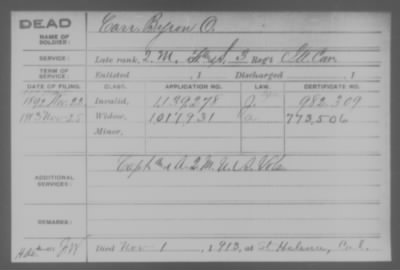 DEAD
NAME OF SOLDIER: Carr, Byron O.
SERVICE: Late rank, Q.M., F & S, 3 Reg't Ill Cav
TERM OF SERVICE: Enlisted , 1 Discharged , 1
DATE OF FILING. CLASS. APPLICATION NO. LAW. CERTIFICATE NO.
1892 Nov. 22 Invalid, 1139278 982.309
1913 Nov-25 Widow, 1017931 773,506
Minor,
ADDITIONAL SERVICES: Capt & A.Q.M. U.S. Vols
REMARKS:
Died Nov 1 , 1913, at St Helena, Cal.